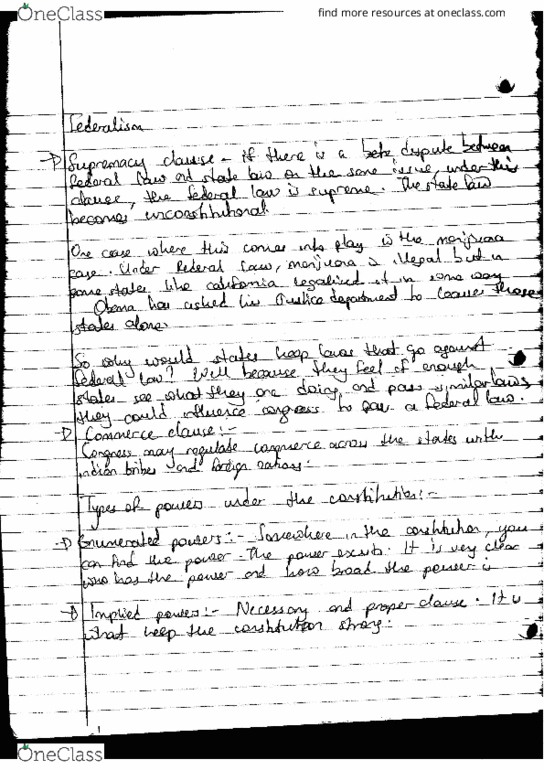 OneClass
find more resources at oneclass.com
Federalism
Supremacy clause - if there is a dispute between
federal law and state law on the same issue, under this
clause, the federal law is supreme. The state law
becomes unconstitutional.
One case where this comes into play is the marijuana
case. Under Federal law, marijuana is illegal but in
some states like california legalized it in some way
Obama has asked his Justice department to leave those
states alone.
So why would states keep laws that go against
federal law? Well because they feel if enough
states see what they are doing and pass similar laws
they could influence congress to pass a federal law.
Commerce clause:-
Congress may regulate commerce across the states with
indian tribes and foreign nations.
Types of powers under the constitution:-
Enumerated powers:- Somewhere in the constitution, you
can find the power. The power exists. It is very clear
who has the power and how broad the power is
Implied powers:- Necessary and proper clause. It is
what keep the constitution strong.
OneClass